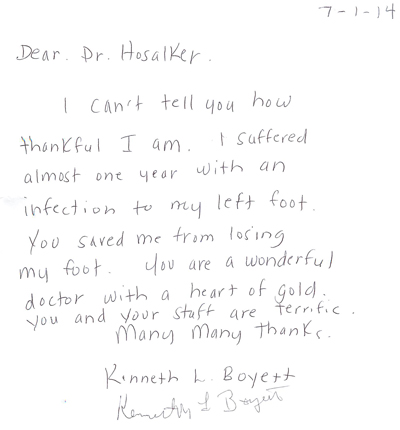 7-1-14
Dear. Dr. Hosalker.
I can't tell you how
thankful I am. I suffered
almost one year with an
infection to my left foot.
You saved me from losing
my foot. You are a wonderful
doctor with a heart of gold.
You and your staff are terrific.
Many Many thanks.
Kenneth L. Boyett
Kenneth L Boyett